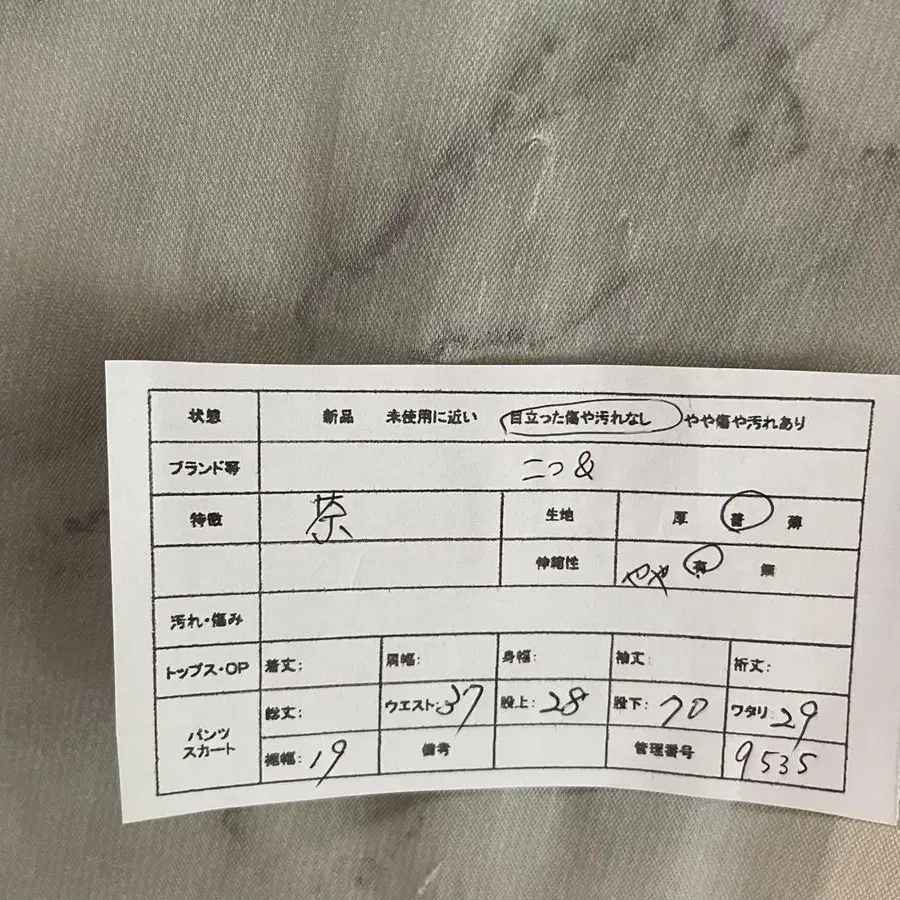 状態 新品 未使用に近い 目立った傷や汚れなし やや傷や汚れあり
ブランド等 ニつ&
特徴 茶 生地 厚 普 薄
伸縮性 やや 有 無
汚れ・傷み
トップス・OP 着丈: 肩幅: 身幅: 袖丈: 裄丈:
パンツ スカート 総丈: ウエスト:37 股上:28 股下:70 ワタリ:29
裾幅:19 備考 管理番号 9535